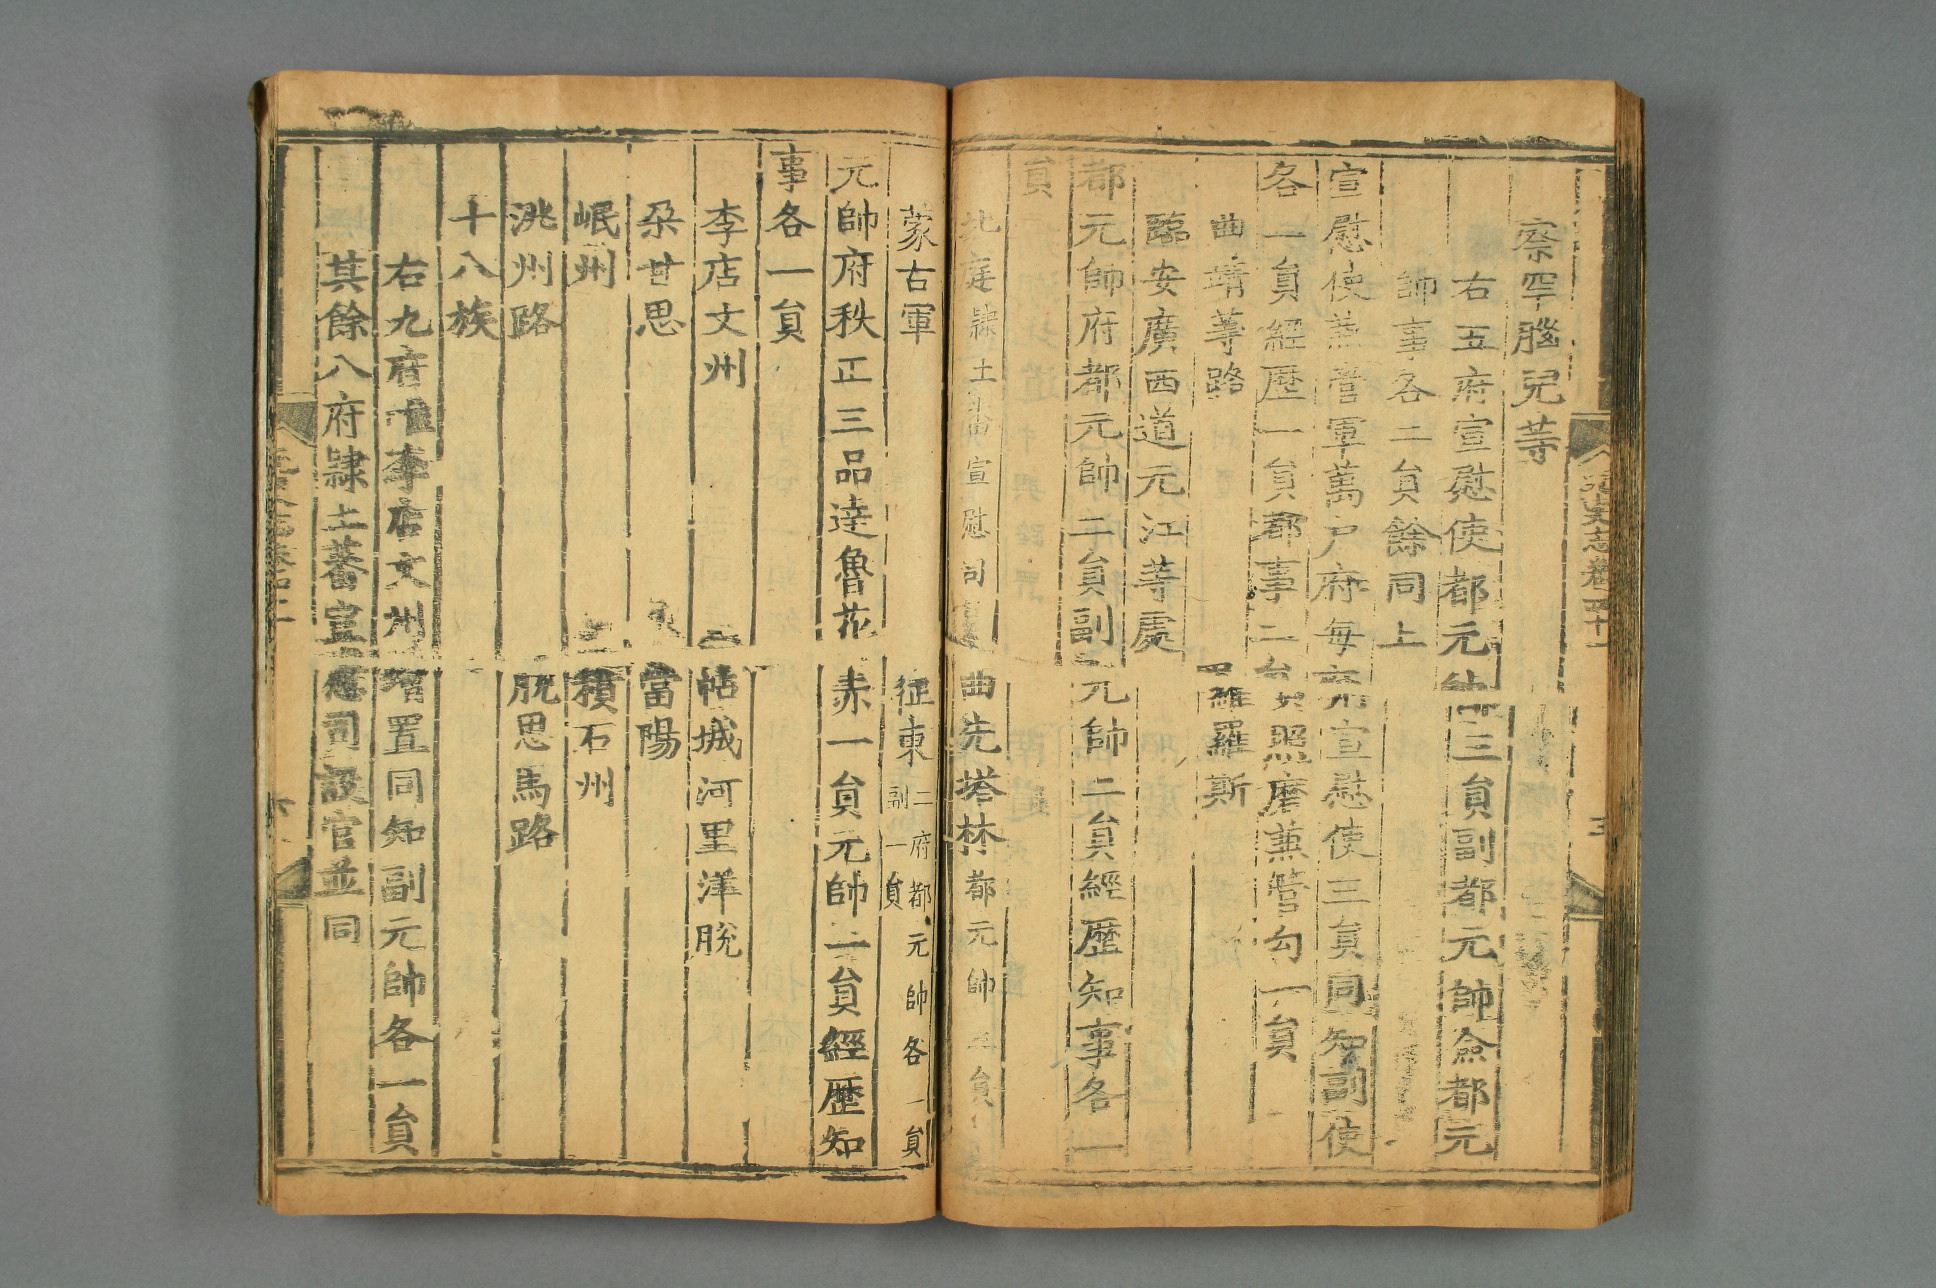 察罕腦兒等
右五府宣慰使都元帥三員副都元帥僉都元
帥事各二員餘同上
宣慰使兼管軍萬戶府每府宣慰使三員同知副使
各一員經歷一員都事二員照磨兼管勾一員
曲靖等路 羅羅斯
臨安廣西道元江等處
都元帥府都元帥二員副元帥二員經歷知事各一
員
北庭隸土番宣慰司 曲先塔林都元帥三員
蒙古軍 征東二府都元帥各一員副一員
元帥府秩正三品達魯花赤一員元帥一員經歷知
事各一員
李店文州 帖城河里洋脫
朶甘思 當陽
岷州 積石州
洮州路 脫思馬路
十八族
右九府惟李店文州增置同知副元帥各一員
其餘八府隸土蕃宣慰司設官並同